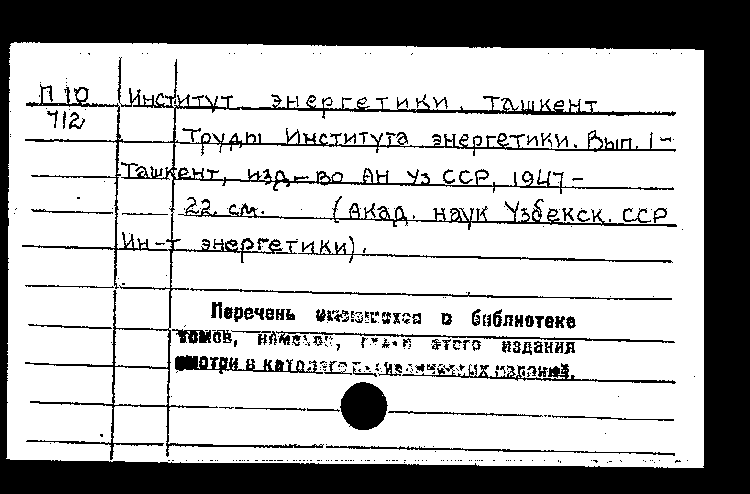 П 10 Институт энергетики. Ташкент
712 Труды Института энергетики. Вып. 1-
Ташкент, изд-во АН УзССР, 1947-
22 см. (Акад. наук Узбекск. ССР
Ин-т энергетики).
Перечень имеющихся в библиотеке
томов, номеров, этого издания
смотри в каталоге изданий.